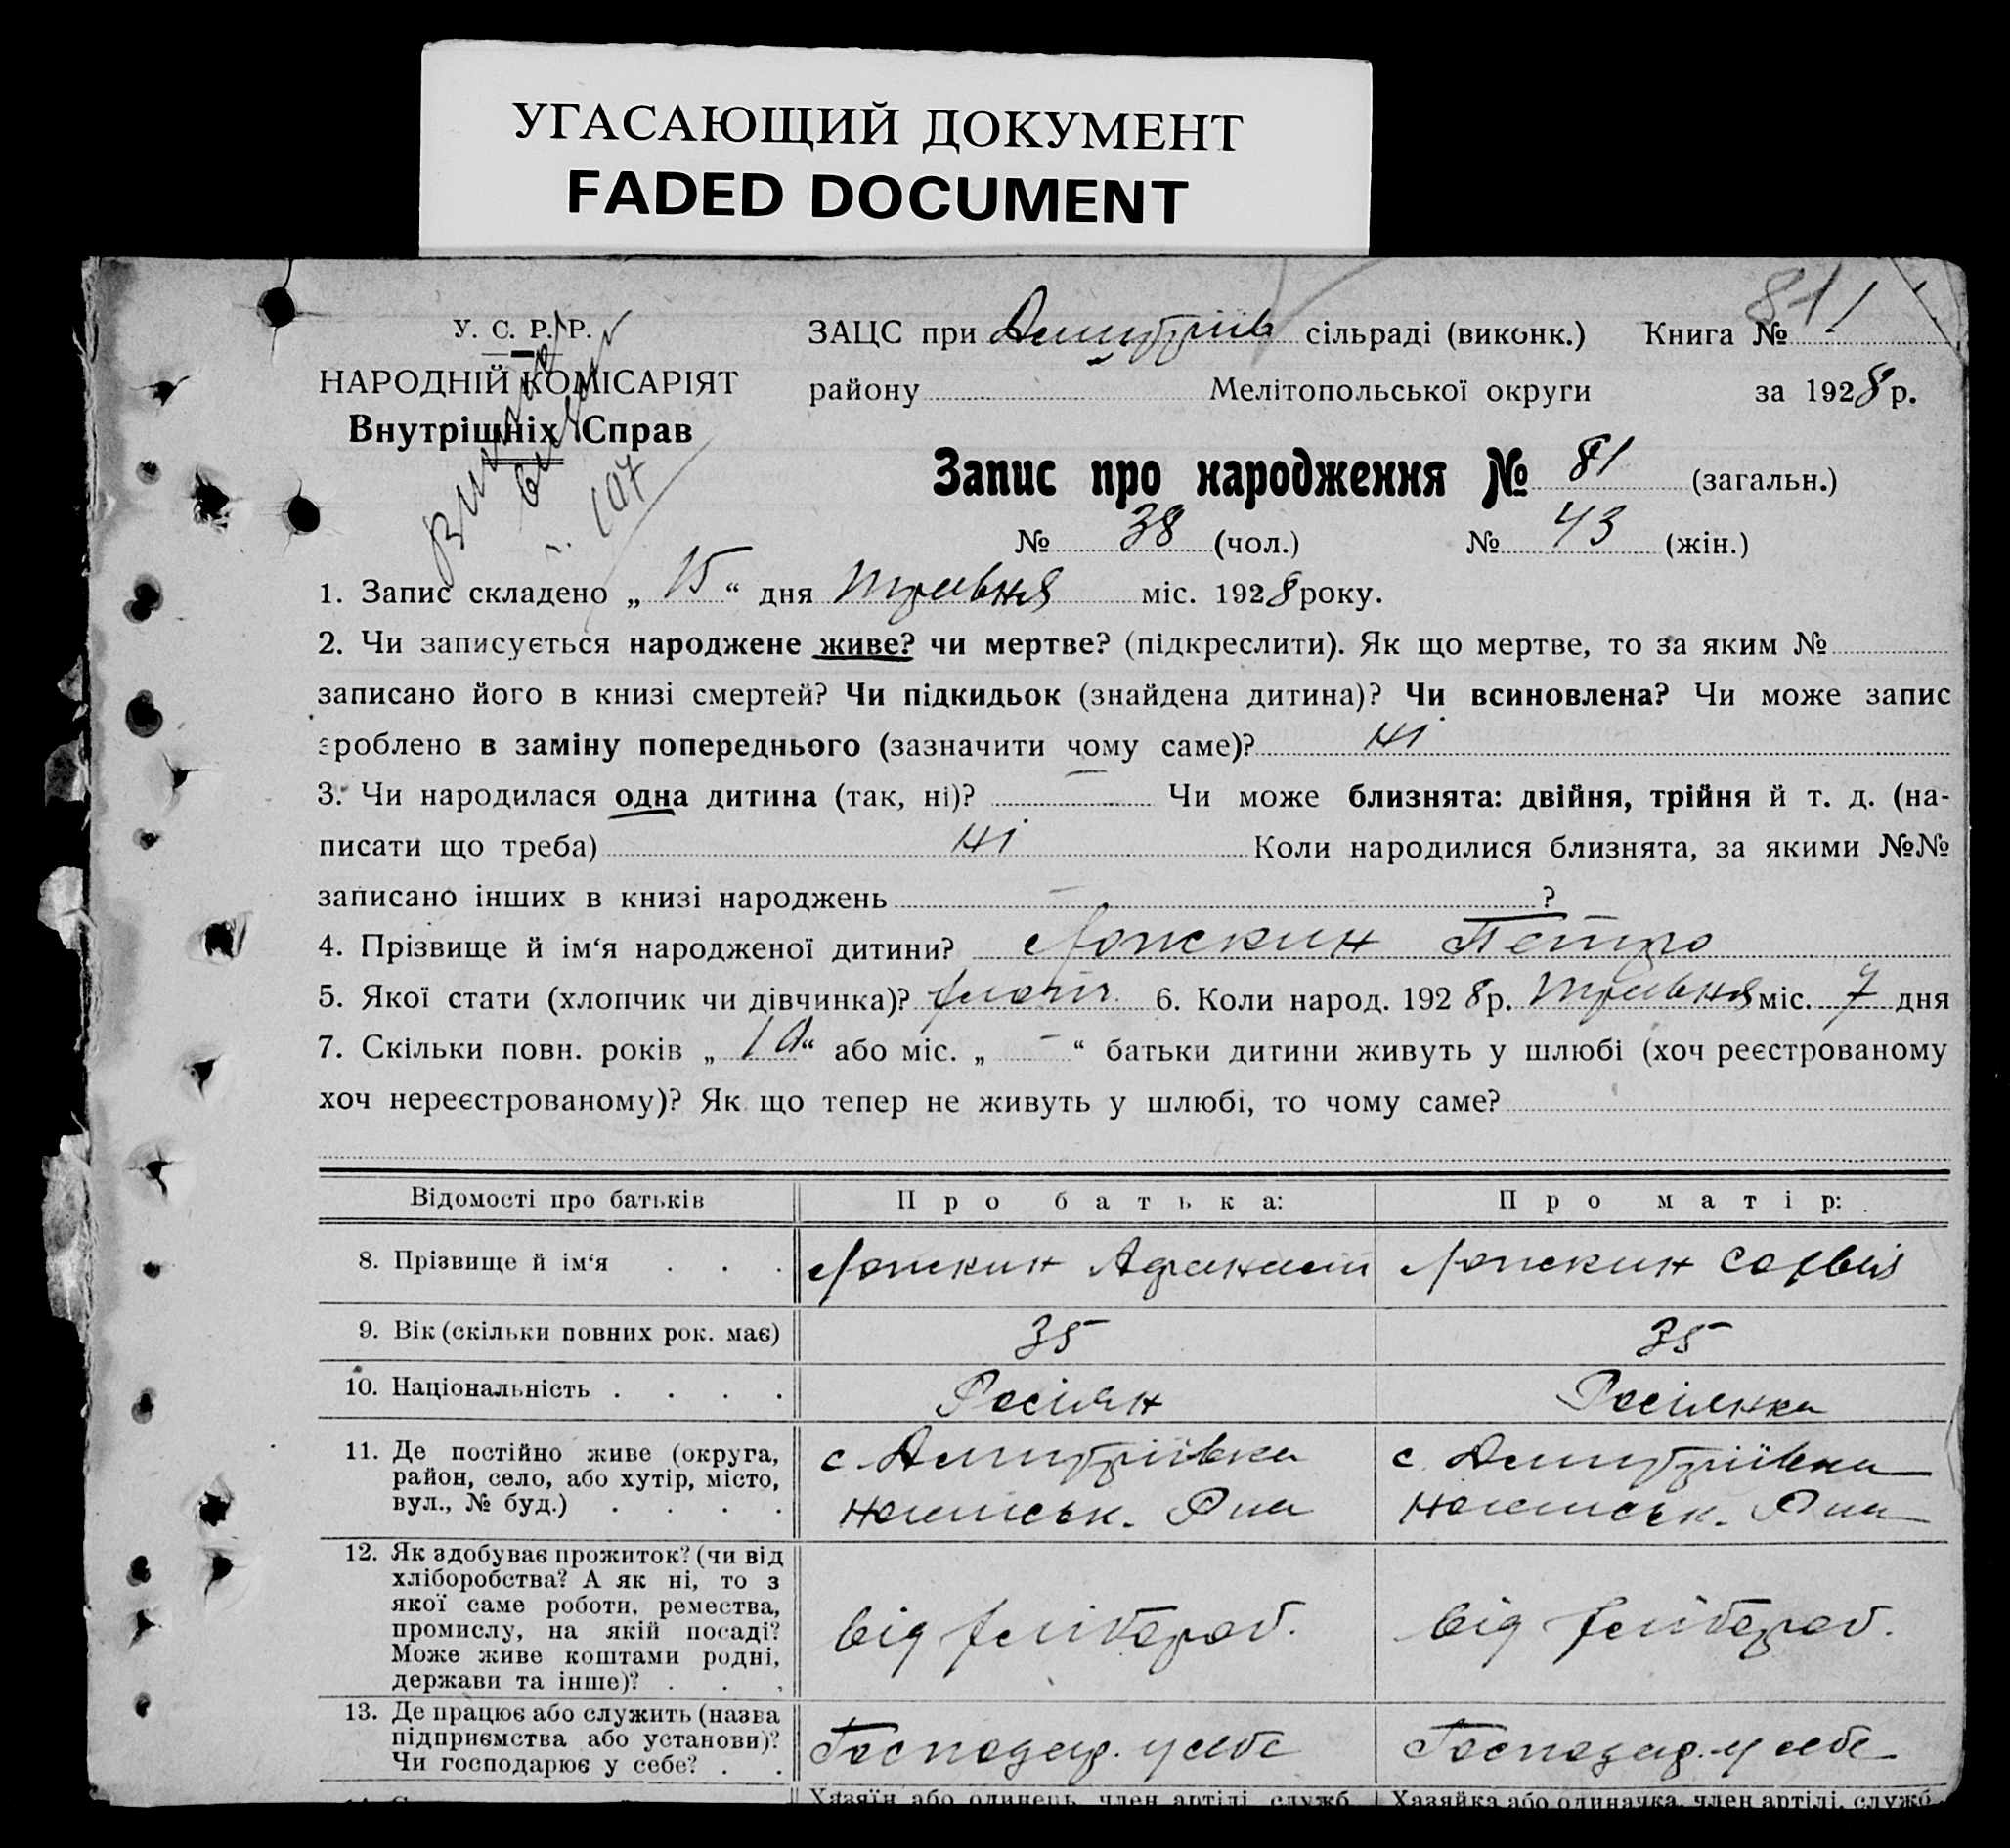 УГАСАЮЩИЙ ДОКУМЕНТ
FADED DOCUMENT
У. С. Р. Р.
НАРОДНІЙ КОМІСАРІЯТ
Внутрішніх Справ
107
ЗАЦС при сільраді (виконк.) Книга № 81
району Мелітопольської округи за 1928 р.
Запис про народження № 81 (загальн.)
№ 38 (чол.) № 43 (жін.)
1. Запис складено „ 15 “ дня Травня міс. 1928 року.
2. Чи записується народжене живе? чи мертве? (підкреслити). Як що мертве, то за яким №
записано його в книзі смертей? Чи підкидьок (знайдена дитина)? Чи всиновлена? Чи може запис
зроблено в заміну попереднього (зазначити чому саме)? Ні
3. Чи народилася одна дитина (так, ні)? — Чи може близнята: двійня, трійня й т. д. (на-
писати що треба) Ні Коли народилися близнята, за якими №№
записано інших в книзі народжень — ?
4. Прізвище й ім‘я народженої дитини? Петро
5. Якої стати (хлопчик чи дівчинка)? хлопч. 6. Коли народ. 1928 р. Травня міс. 7 дня
7. Скільки повн. років „ 10 “ або міс. „ — “ батьки дитини живуть у шлюбі (хоч реєстрованому
хоч нереєстрованому)? Як що тепер не живуть у шлюбі, то чому саме?
Відомості про батьків Про батька: Про матір:
8. Прізвище й ім‘я . . .
9. Вік (скільки повних рок. має) 35 35
10. Національність . . . . Росіян Росіянка
11. Де постійно живе (округа, с. Дмитріівка с. Дмитріівка
район, село, або хутір, місто,
вул., № буд.) . . . .
12. Як здобуває прожиток? (чи від
хліборобства? А як ні, то з
якої саме роботи, ремества,
промислу, на якій посаді? від хлібороб. від хлібороб.
Може живе коштами родні,
держави та інше)? . . .
13. Де працює або служить (назва
підприємства або установи)? Господар. у себе Господар. у себе
Чи господарює у себе? . .
Хазяїн або одинець, член артілі, служб. Хазяйка або одиначка, член артілі, служб.